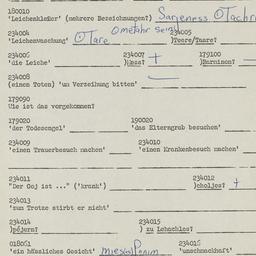 180010
'Leichenkleider' (mehrere Bezeichnungen?) Sargeness
234004 234005
'Leichenwaschung' Tare )Toore/Taare?
234006 234007 179100
'die Leiche' )Mess? + )Barminen?
234008
(einen Toten) 'um Verzeihung bitten'
179090
Wie ist das vorgekommen?
179020 190020
'der Todesengel' 'das Elterngrab besuchen'
234009 234010
'einen Trauerbesuch machen' 'einen Krankenbesuch machen'
234011 234012
"Der Goj ist ..." ('krank') )choljes? +
234013
'zum Trotze stirbt er nicht'
234014 234015
)pejern? ) zu Lehachles?
018051 234016
'ein hässliches Gesicht' 'unschmackhaft'